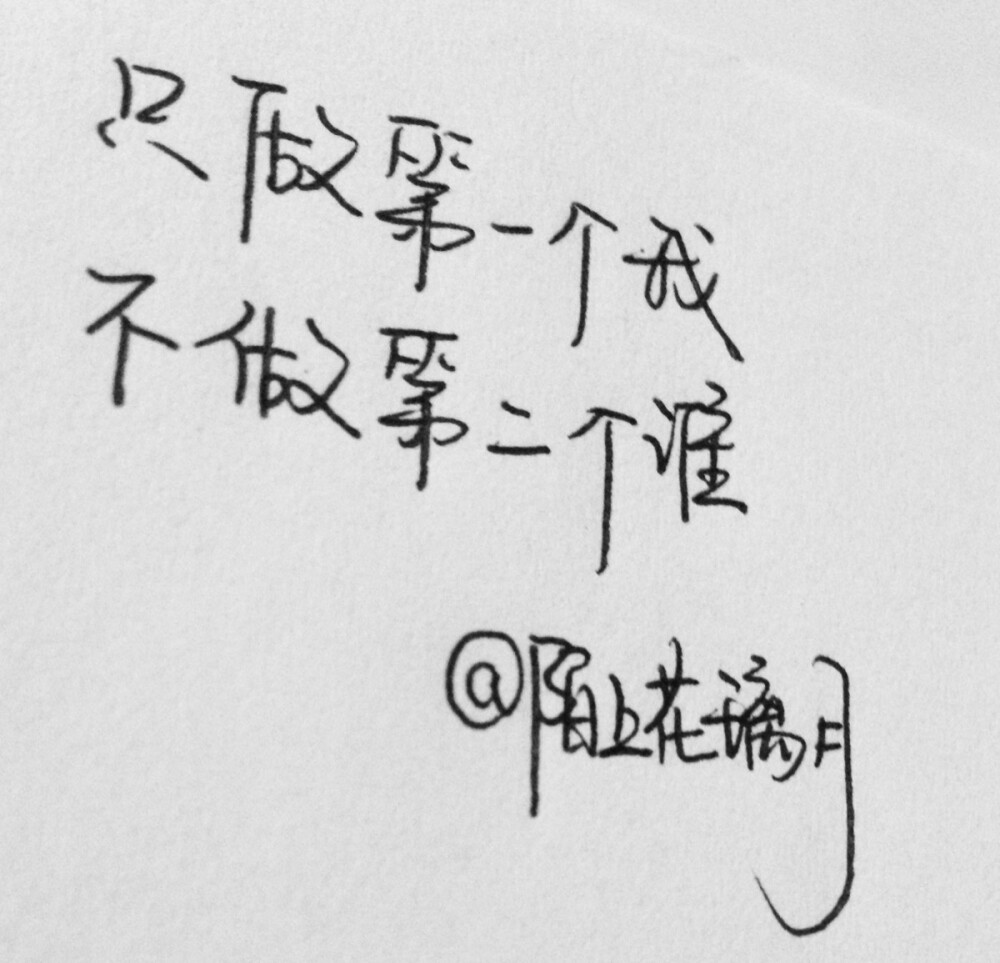 只做第一个我
不做第二个谁
@陌上花漓月